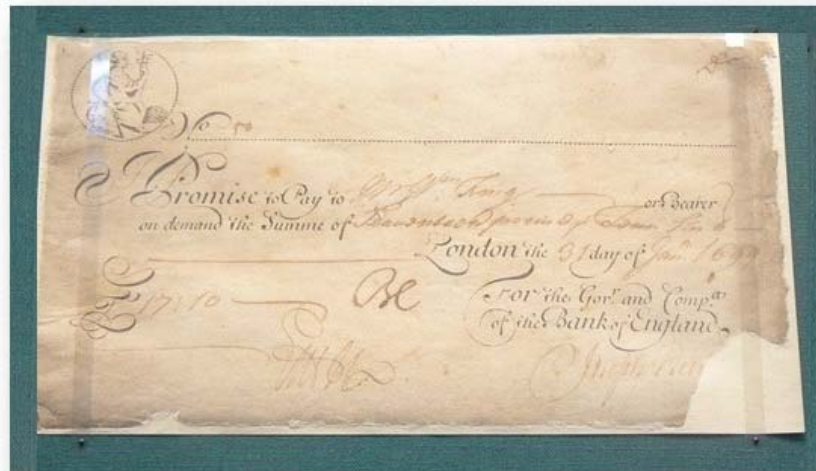 No 50
I Promise to Pay to Mr Wm King or Bearer
on demand the Summe of pounds Tenn
London the 31 day of Jan
£ 17:10
For the Govr. and Compa.
of the Bank of England